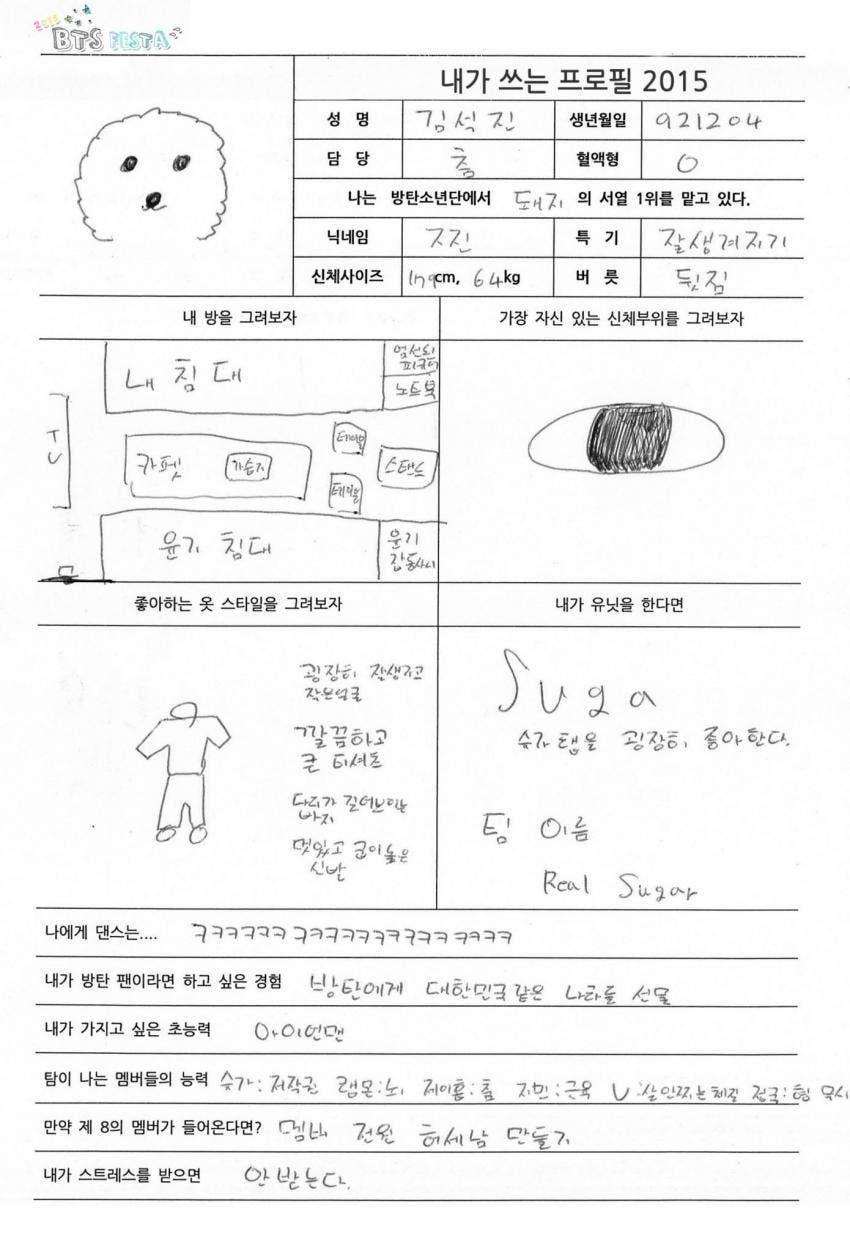 2015
BTS FESTA
내가 쓰는 프로필 2015
성 명 김석진 생년월일 921204
담 당 춤 혈액형 O
나는 방탄소년단에서 돼지 의 서열 1위를 맡고 있다.
닉네임 ㅈ진 특 기 잘생겨지기
신체사이즈 179cm, 64kg 버 릇 뒷짐
내 방을 그려보자
내 침대
피규어
노트북
TV
카펫
가습기
테이블
스탠드
테이블
윤기 침대
윤기
잡동사니
가장 자신 있는 신체부위를 그려보자
좋아하는 옷 스타일을 그려보자
굉장히 잘생기고
작은얼굴
깔끔하고
큰 티셔츠
다리가 길어보이는
바지
멋있고 굽이높은
신발
내가 유닛을 한다면
Suga
슈가 랩을 굉장히 좋아한다.
팀 이름
Real Sugar
나에게 댄스는.... ㅋㅋㅋㅋㅋㅋ ㅋㅋㅋㅋㅋㅋㅋㅋㅋㅋ ㅋㅋㅋㅋ
내가 방탄 팬이라면 하고 싶은 경험 방탄에게 대한민국같은 나라를 선물
내가 가지고 싶은 초능력 아이언맨
탐이 나는 멤버들의 능력 슈가: 저작권 랩몬:뇌 제이홉:춤 지민:근육 V:살안찌는체질 정국:형 무시
만약 제 8의 멤버가 들어온다면? 멤버 전원 허세남 만들기
내가 스트레스를 받으면 안받는다.